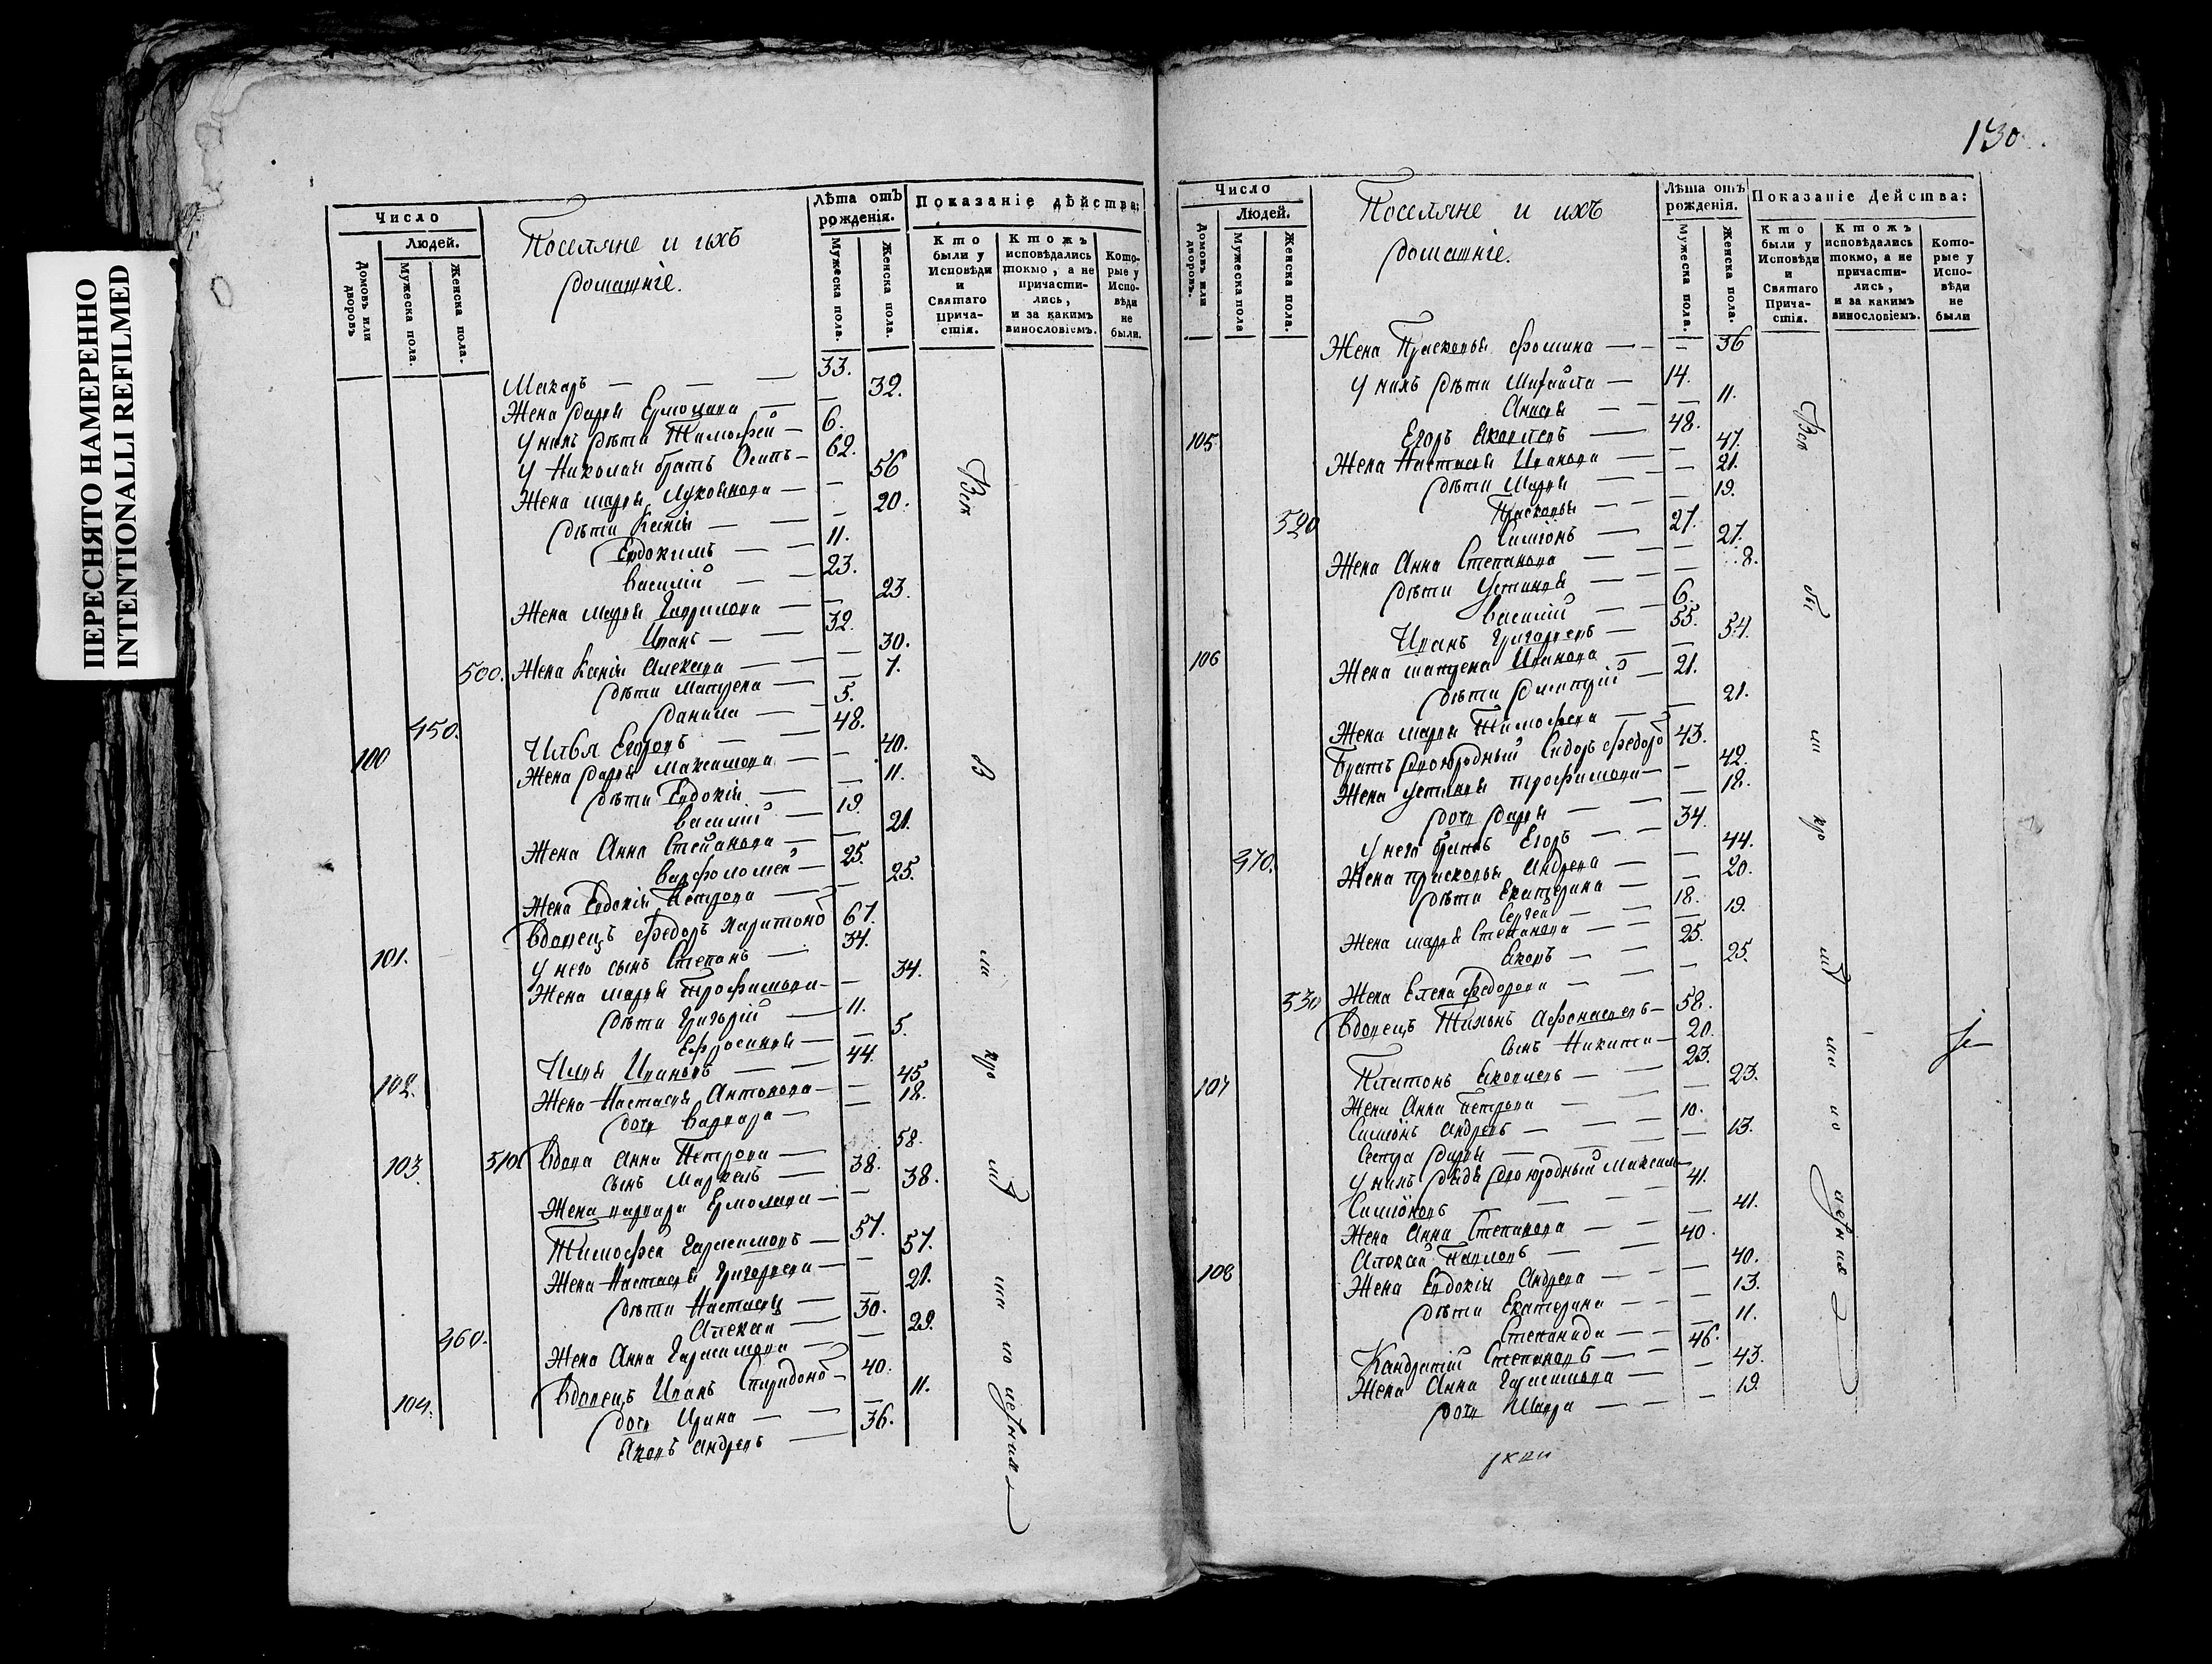 ПЕРЕСНЯТО НАМЕРЕННО
INTENTIONALLI REFILMED
Число
Людей.
Домовъ или дворовъ
Мужеска пола.
Женска пола.
Поселяне и ихъ
домашніе.
Лѣта отъ рожденія.
Мужеска пола.
Женска пола.
Показаніе дѣйства:
Кто были у Исповѣди и Святаго Прича-стія.
Ктожъ исповѣдались токмо, а не причасти-лись, и за какимъ винословіемъ.
Кото-рые у Испо-вѣди не были.
Макаръ — — — 33.
Жена Дарья — — 32.
У нихъ дѣти Тимофей — 6.
У Николая братъ Осипъ — 62.
Жена Марья — — 56
дѣти Ксенія — — 20.
Евдокимъ — — 11.
Василий — — 23.
Жена Марья Гаврилова — — 23.
Иванъ — — 32.
500. Жена Ксенія Алексева — — 30.
дѣти Матрена — — 7.
Данила — — 5.
100 450. Илья Егоровъ — — 48.
Жена Дарья Максимова — — 40.
дѣти Евдокія — — 11.
Василий — 19.
Жена Анна Степанова — — 21.
Варфоломей — 25.
Жена Евдокія Петрова — — 25.
101. Вдовецъ Федоръ Харитоно 67.
У него сынъ Степанъ — 34.
Жена Марья Трофимова — — 34.
дѣти Григорій — 11.
Ефросинья — — 5.
102. Илья Ивановъ — — 44.
Жена Настасья Антонова — — 45
дочь Варвара — — 18.
103. 510. Вдова Анна Петрова — 58.
сынъ Маркелъ — 38.
Жена Варвара Ермолаева — — 38.
Тимофей Гарасимовъ — 57.
Жена Настасья Григорьева — — 57.
дѣти Настасья — — 21.
360. Алексей — 30.
Жена Анна Гарасимова — — 29.
104. Вдовецъ Иванъ Спиридоно — 40.
дочь Ирина — — — 11.
Яковъ Андреевъ — 36.
Всѣ
130.
Число
Людей.
Домовъ или дворовъ.
Мужеска пола
Женска пола.
Поселяне и ихъ
домашніе.
Лѣта отъ рожденія.
Мужеска пола.
Женска пола.
Показаніе Действа:
Кто были у Исповѣди и Святаго Прича-стія.
Ктожъ исповѣдались токмо, а не причасти-лись, и за какимъ винословіемъ.
Кото-рые у Испо-вѣди не были
Жена Прасковья Фомина — — — 36
У нихъ дѣти Михайла — 14.
Анисья — — — 11.
105. Егоръ Яковлевъ — 48.
Жена Настасья Иванова — — 47.
дѣти Марья — — 21.
520 Прасковья — — — 19.
Симіонъ — — 27.
Жена Анна Степанова — — 27.
дѣти Устинья — — — 8.
Василий — — 6.
106 Иванъ Григорьевъ — 55.
Жена Матрена Иванова — — 54.
дѣти Дмитрий — 21.
Жена Марья Тимофеева — — 21.
Братъ двоюродный Сидоръ Федоро 43.
Жена Устинья Трофимова — — 42.
дочь Дарья — — — 18.
370. У него братъ Егоръ — — 34.
Жена Прасковья Андреева — — 44.
дѣти Екатерина — — 20.
Сергей — — 18.
Жена Марья Степанова — — — 19.
Яковъ — — 25.
530 Жена Елена Федорова — — 25.
Вдовецъ Тихонъ Афонасьевъ — 58.
сынъ Никита — 20.
107 Платонъ Яковлевъ — — 23.
Жена Анна Петрова — — 23.
Симіонъ Андреевъ — — 10.
Сестра Дарья — — — 13.
У нихъ дядя двоюродный Максим
Симіоновъ — — 41.
Жена Анна Степанова — — — 41.
108 Алексей Павловъ — — 40.
Жена Евдокія Андреева — — — 40.
дѣти Екатерина — — — 13.
Степанида — — — 11.
Кандратій Степановъ — — 46.
Жена Анна Гарасимова — — — 43.
дочь Мавра — — — 19.
Всѣ